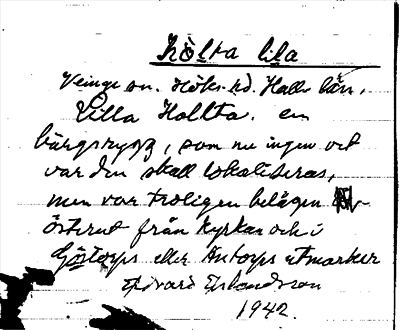 Költa lila
Veinge sn. Höks hd. Hall. län.
Lilla Hollta. en
bärgsrygg, som nu ingen vet
var den skall lokaliseras,
men var troligen belägen
österut från kyrkan och i
Göstorps eller Antorps utmarker
Edvard Erlandsson
1942.